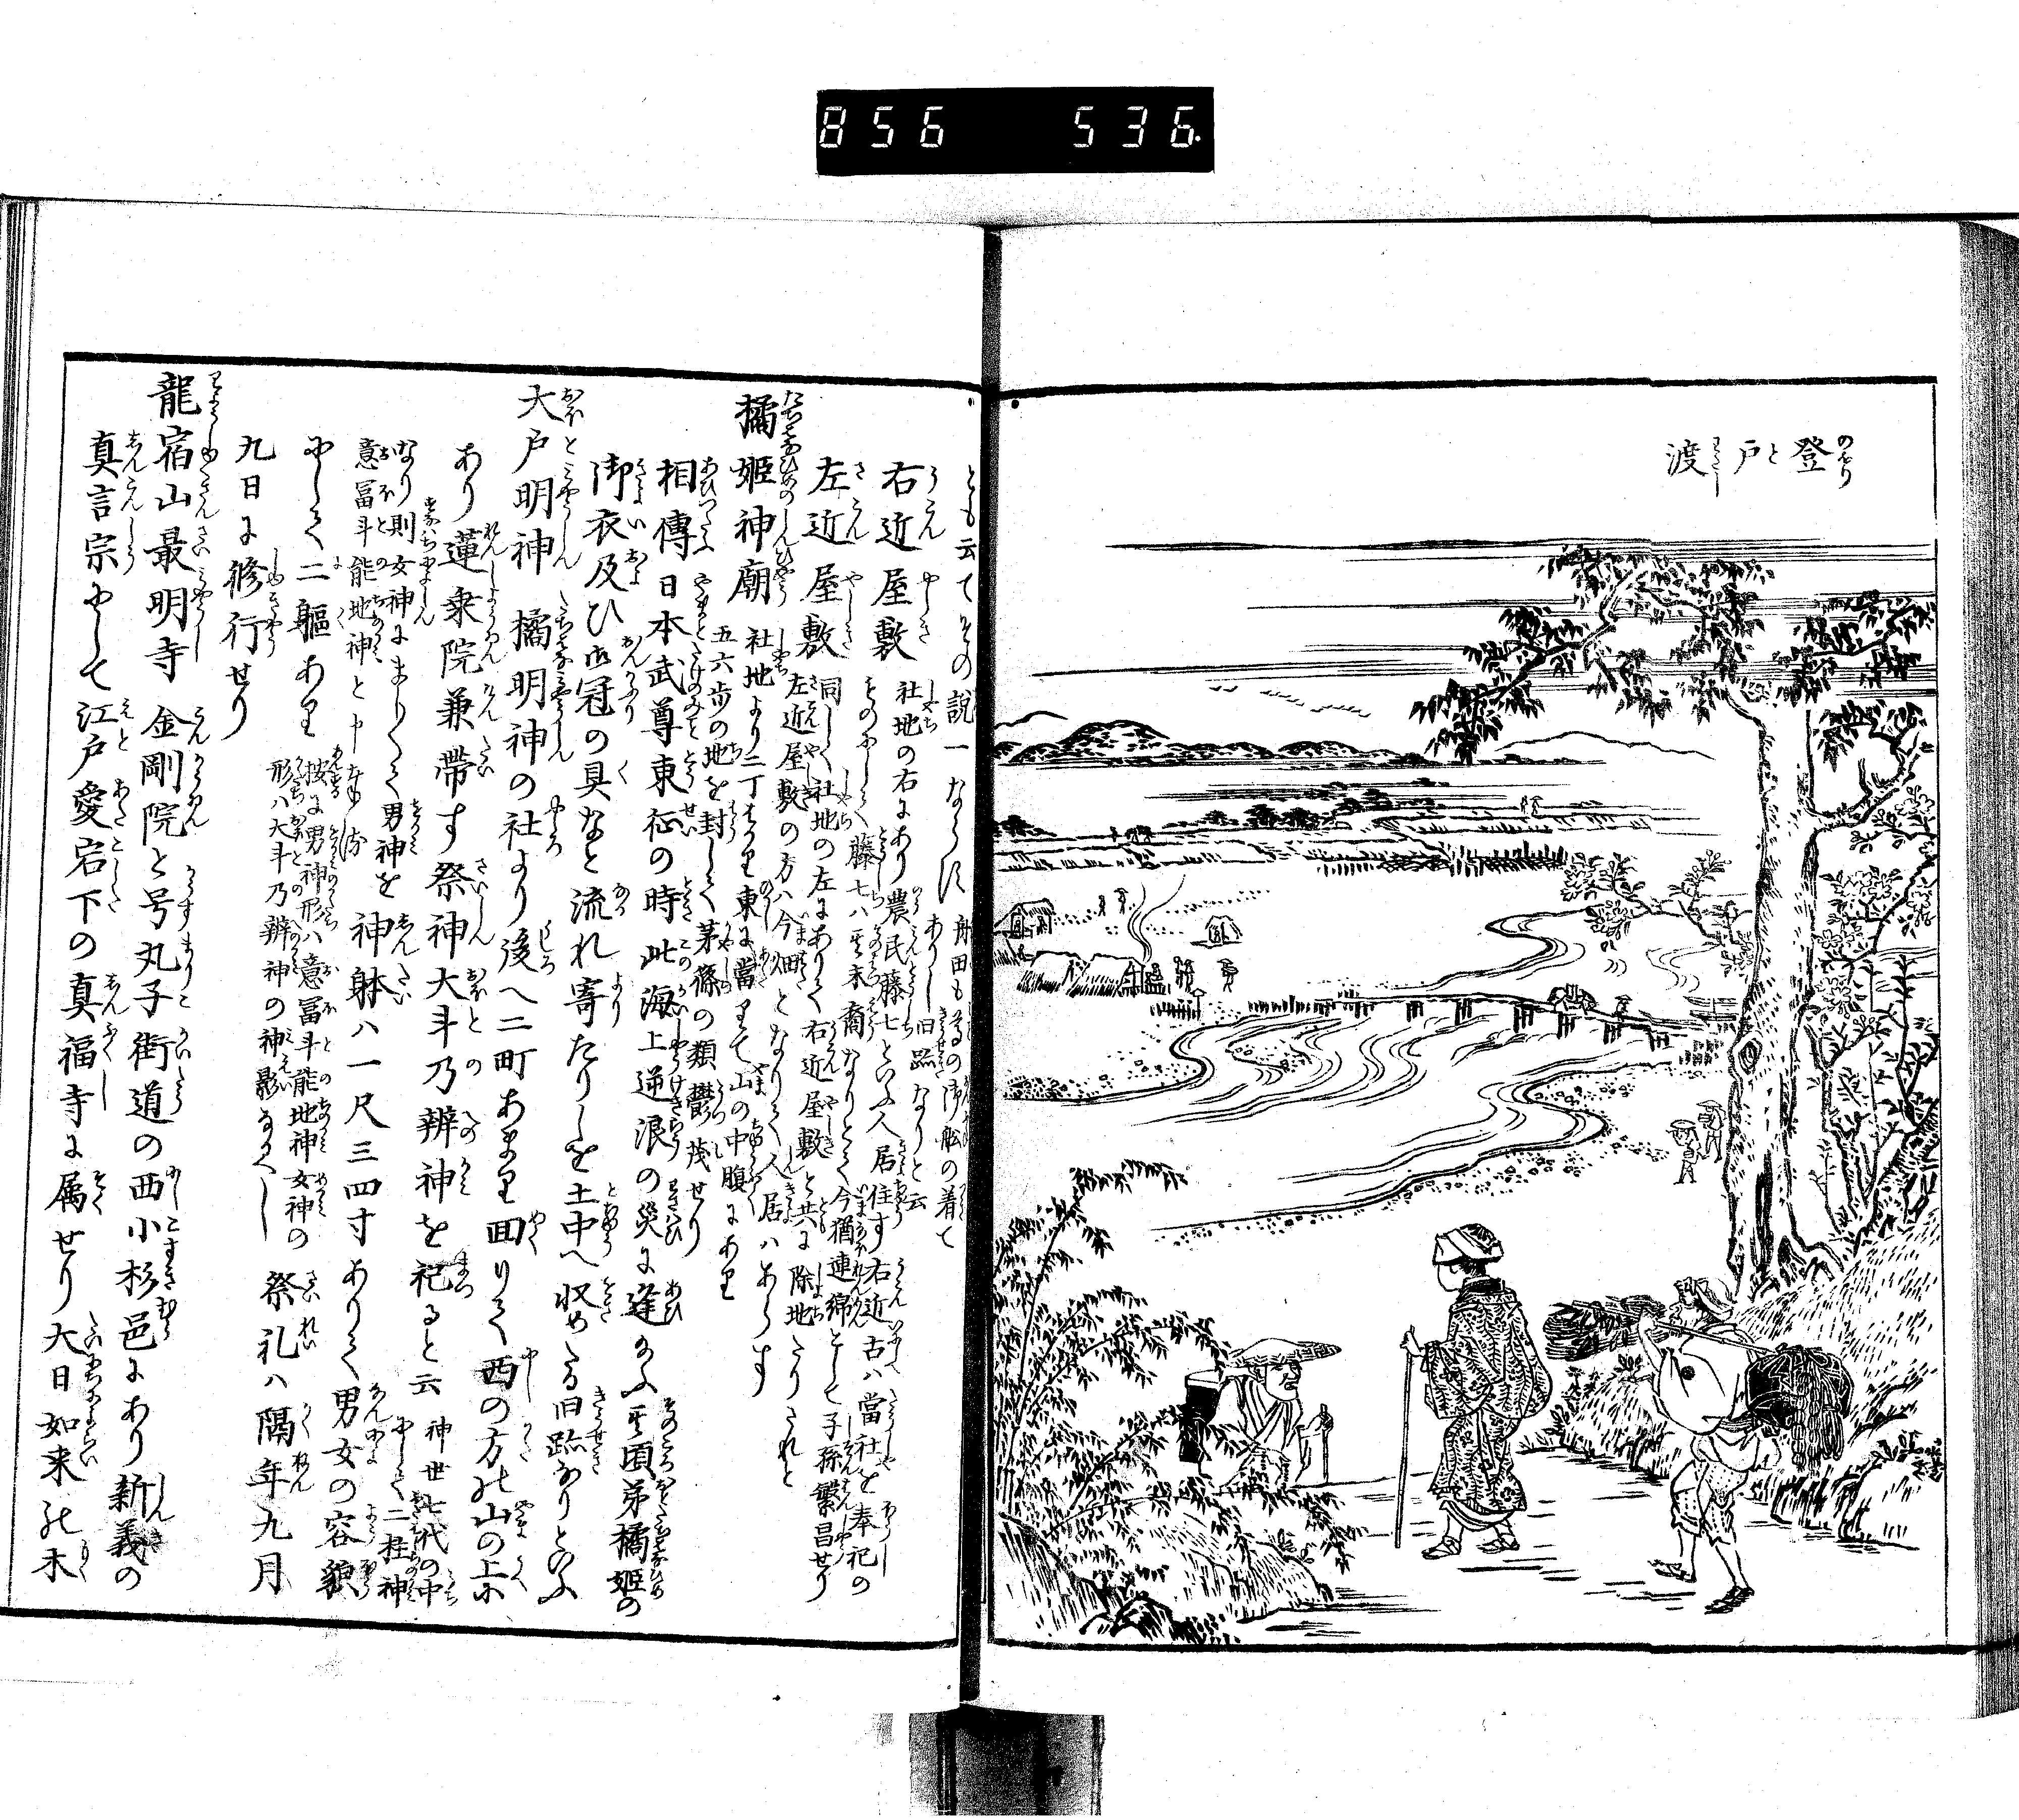 856 536
登戸渡
とも云てその説一ならす 舟田も尊の御舩の着て
ありし旧跡なりと云
右近屋敷 社地の右にあり農民藤七といふ人居住す右近古ハ當社を奉祀の
ものにして藤七ハ其末裔なりとて今猶連綿として子孫繁昌せり
左近屋敷 同しく社地の左にありて右近屋敷と共に除地たりされと
左近屋敷の方ハ今畑となりて人居ハあらす
橘姫神廟 社地より二丁はかり東に當りて山の中腹にあり
五六歩の地を封して茅篠の類鬱茂せり
相傳日本武尊東征の時此海上逆浪の災に逢給ふ其頃弟橘姫の
御衣及ひ御冠の具なと流れ寄たりしを土中へ収めたる旧跡なりといふ
大戸明神 橘明神の社より後へ二町あまり回りて西の方の山の上に
あり蓮乗院兼帯す祭神大斗乃辨神を祀ると云 神世七代の中
にして二柱神
なり則女神にましまして男神を
意冨斗能地神と申奉る
神躰ハ一尺三四寸ありて男女の容貌
にして二軀あり 按に男神形ハ意冨斗能地神女神の
形ハ大斗乃辨神の神影なるへし
祭礼ハ隔年九月
九日に修行せり
龍宿山最明寺 金剛院と号す丸子街道の西小杉邑にあり新義の
真言宗にして江戸愛宕下の真福寺に属せり大日如来の木